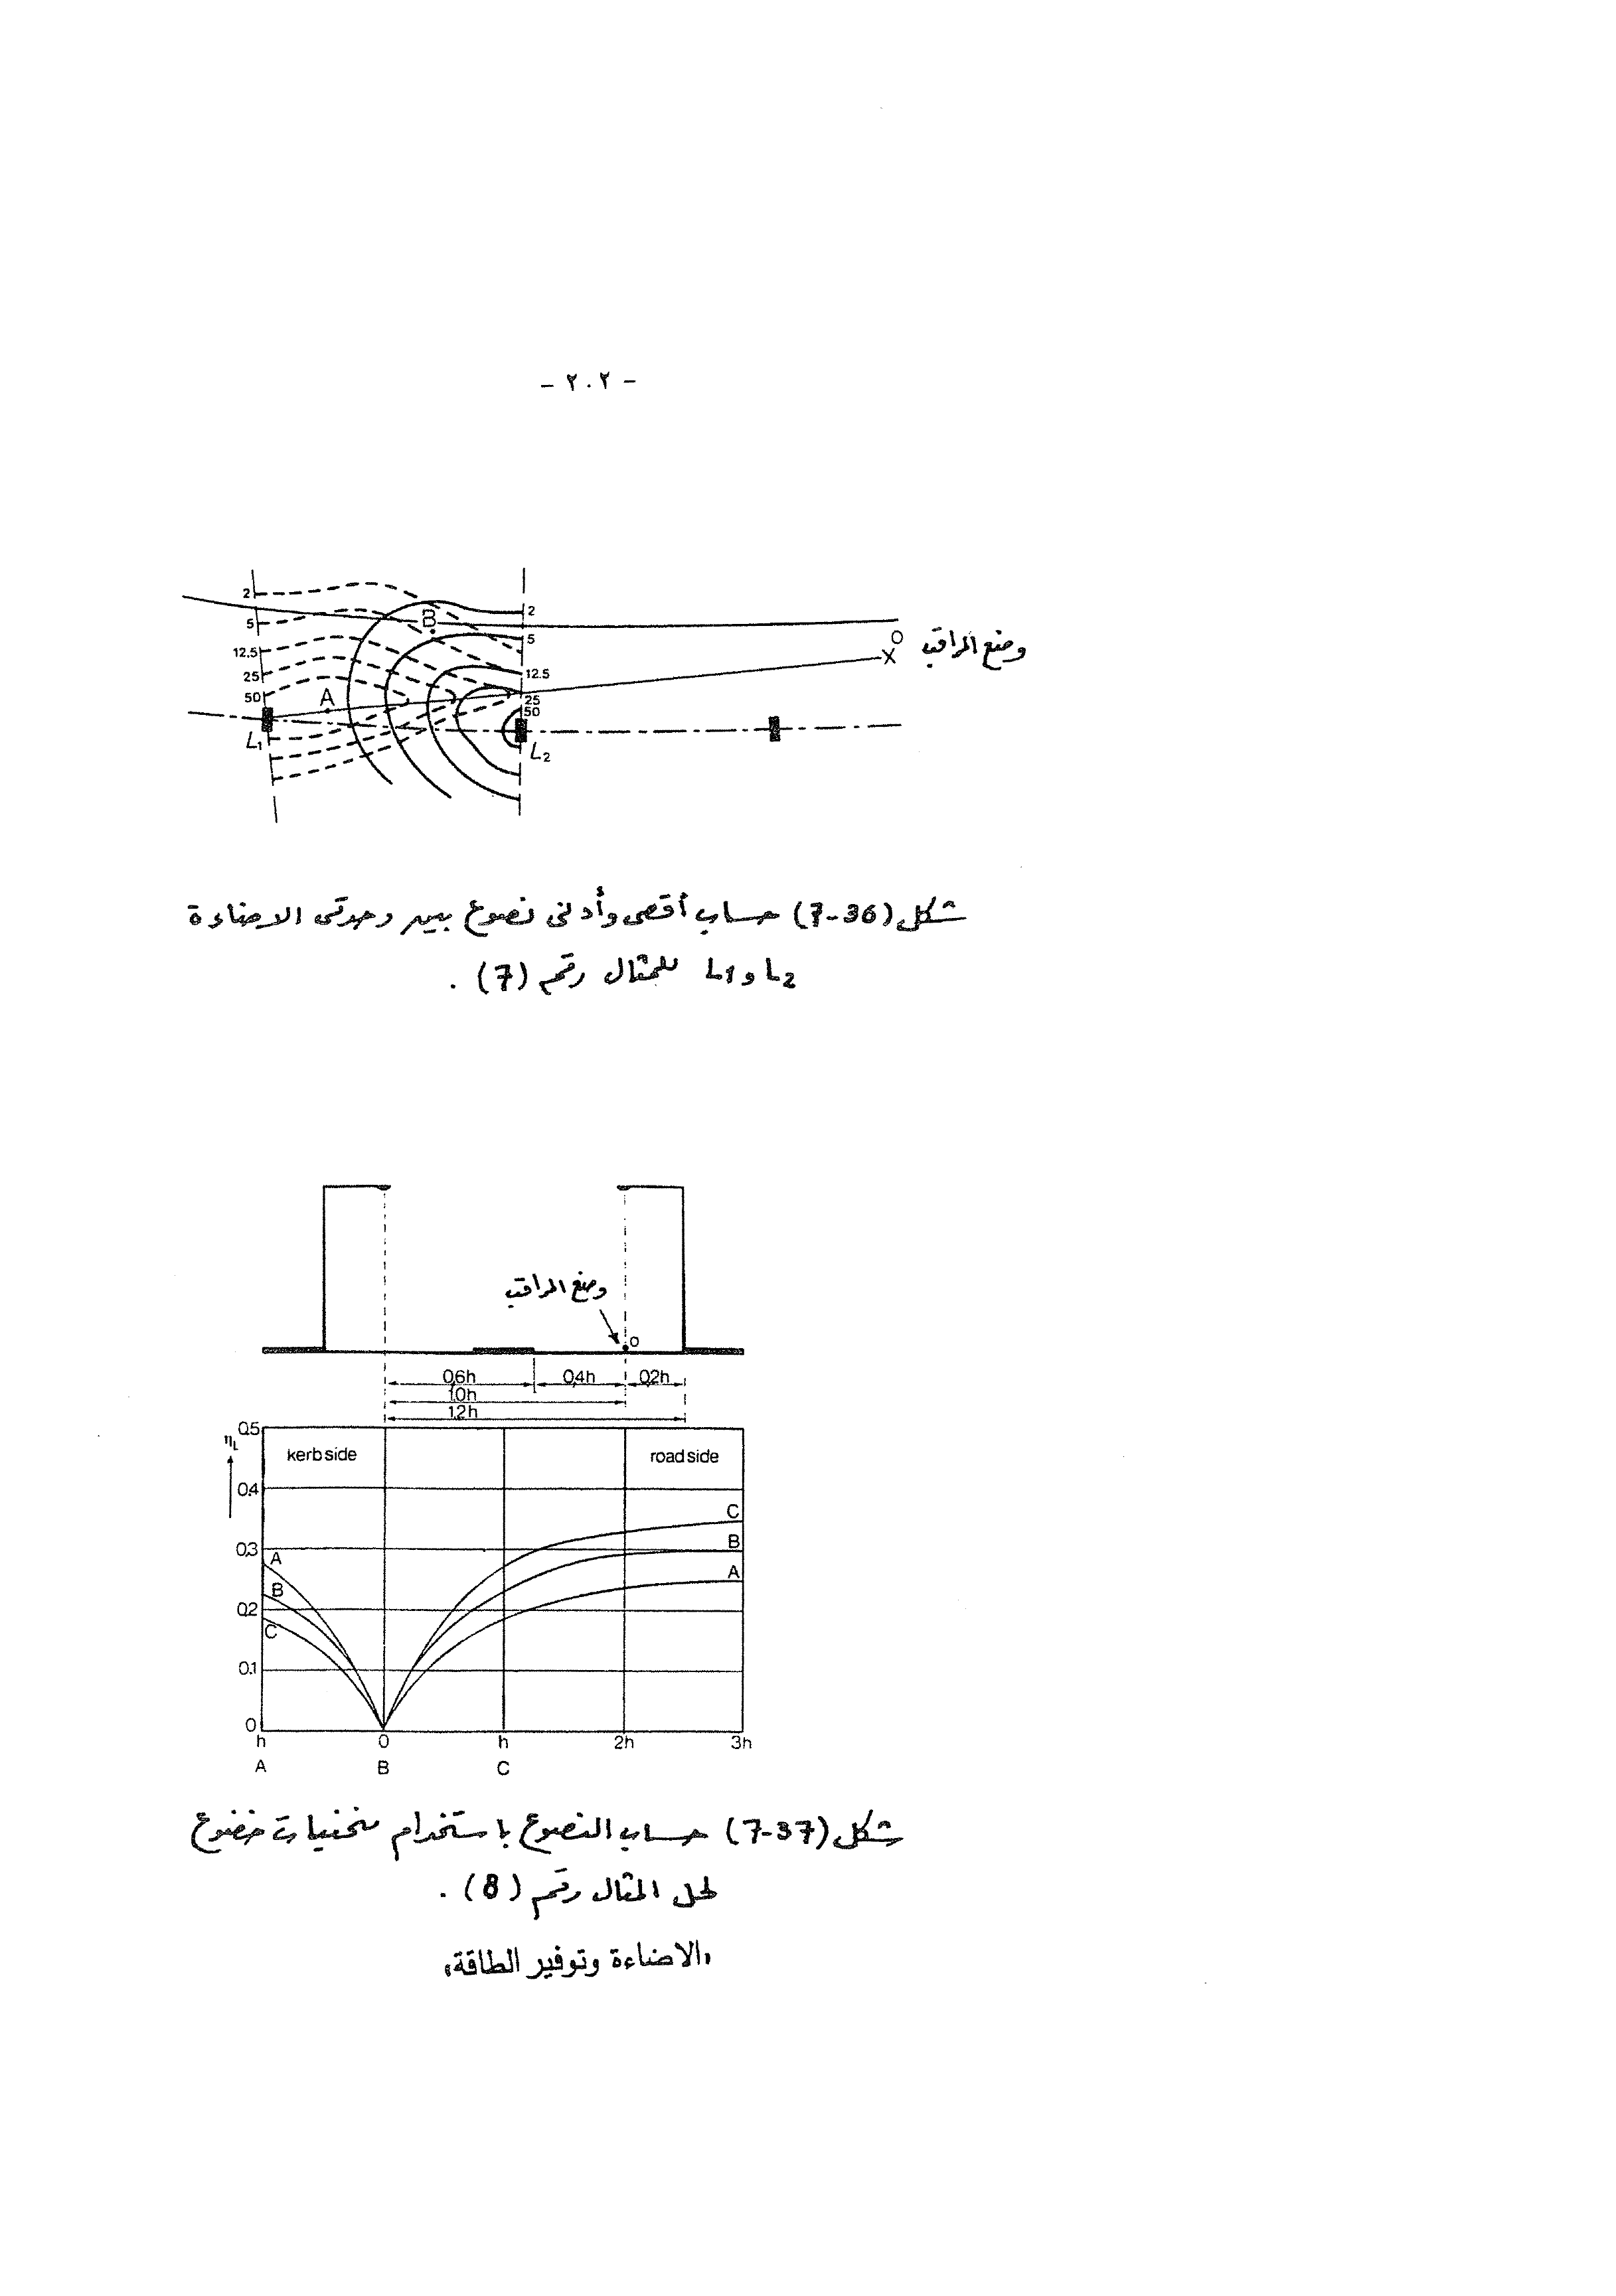 - ٢٠٢ -
2
5
12.5
25
50
A
B
L1
2
5
12.5
25
50
L2
O
X
وضع المراقب
شكل (7-36) حساب أقصى وأدنى نصوع بين وحدتى الاضاءة
L1 و L2 للمثال رقم (7) .
وضع المراقب
o
0,6h 0,4h 0,2h
1.0h
1.2h
ηL
0.5
0.4
0.3
0.2
0.1
0
kerb side
road side
A
B
C
C
B
A
h 0 h 2h 3h
A B C
شكل (7-37) حساب النصوع باستخدام منحنيات خضوع
لحل المثال رقم (8) .
«الاضاءة وتوفير الطاقة»